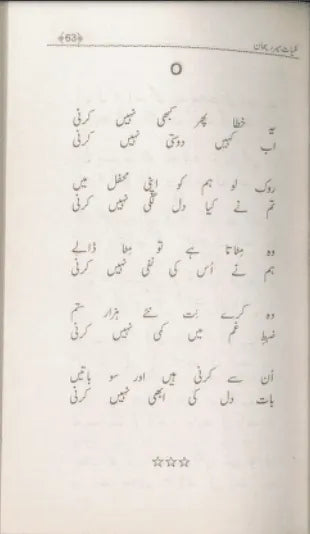 ﴿63﴾
کلیات
یہ خطا پھر کبھی نہیں کرنی
اب کہیں دوستی نہیں کرنی
روک لو ہم کو اپنی محفل میں
تم نے کیا دل لگی نہیں کرنی
وہ مٹاتا ہے تو مٹا ڈالے
ہم نے اُس کی نفی نہیں کرنی
وہ کرے نِت نئے ہزار ستم
ضبطِ غم میں کمی نہیں کرنی
اُن سے کرنی ہیں اور سو باتیں
بات دل کی ابھی نہیں کرنی
☆☆☆